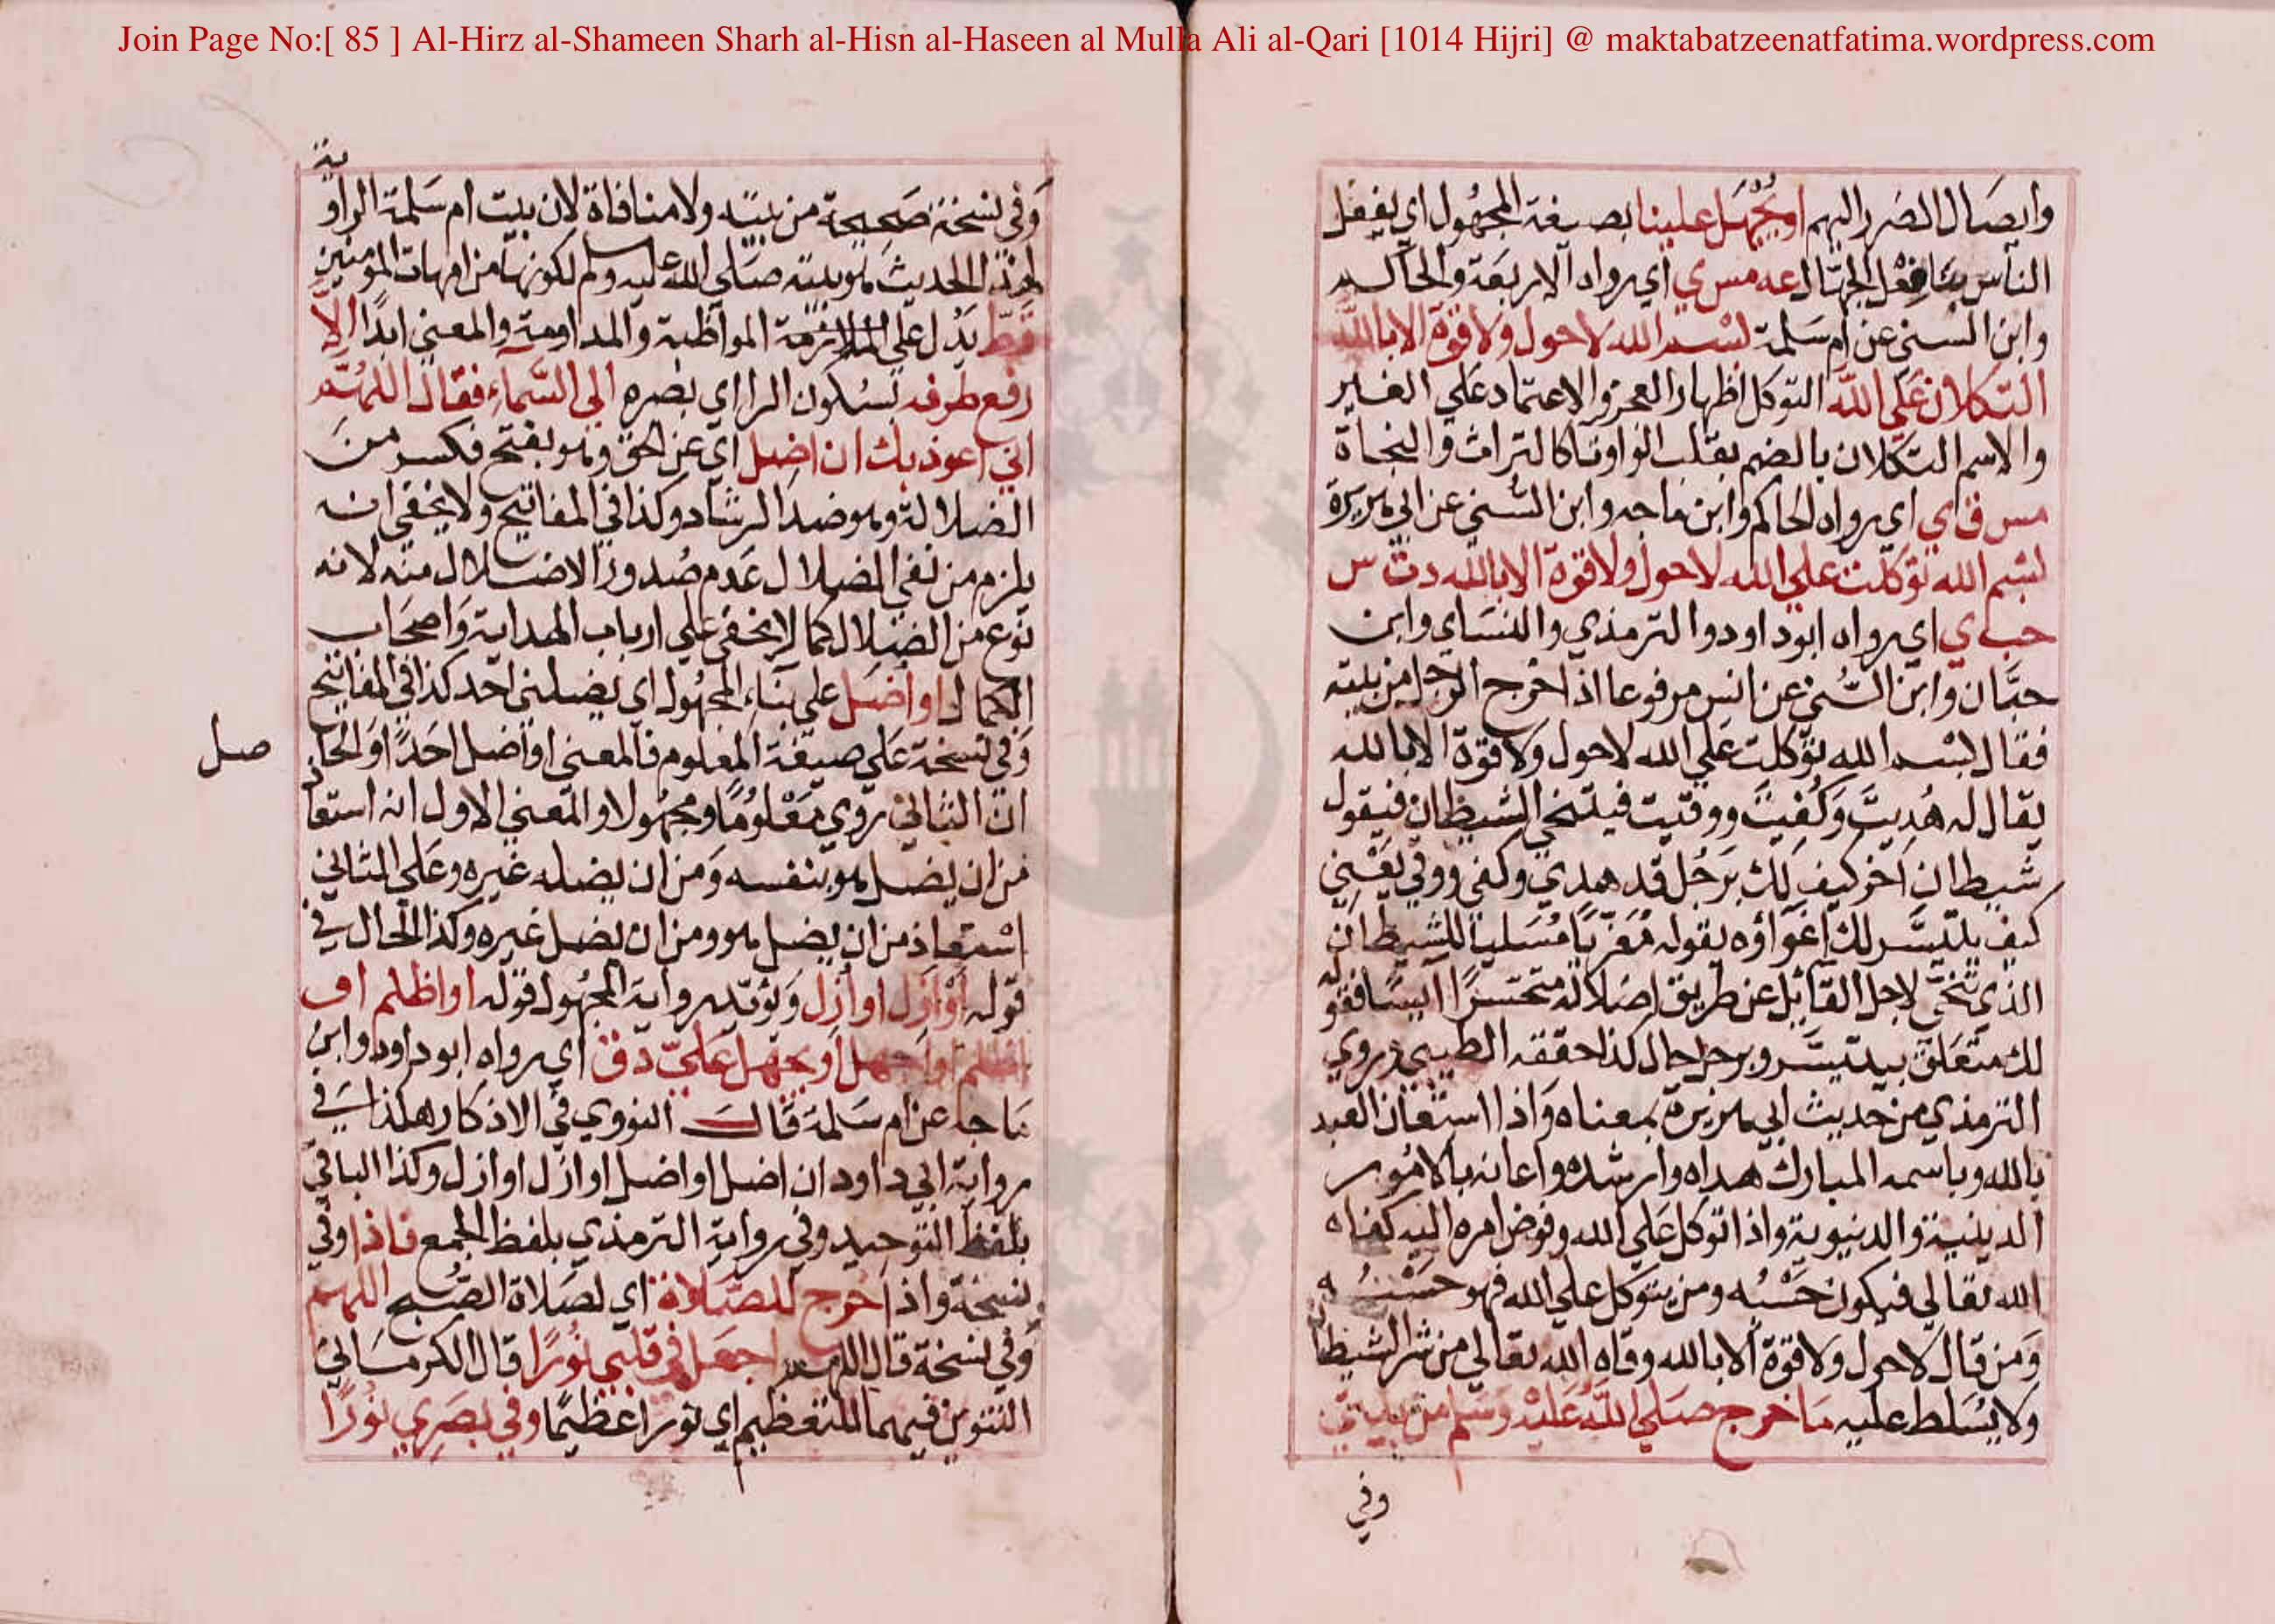 Join Page No:[ 85 ] Al-Hirz al-Shameen Sharh al-Hisn al-Haseen al Mulla Ali al-Qari [1014 Hijri] @ maktabatzeenatfatima.wordpress.com
وايصال الضرر اليهم او يجهل علينا بصيغة المجهول اي يفعل
الناس بنا فعل الجهال عه مس ي اي رواه الاربعة والحاكم
وابن السني عن ام سلمة بسم الله لا حول ولا قوة الا بالله
التكلان على الله التوكل اظهار العجز والاعتماد على الغير
والاسم التكلان بالضم بقلب الواو تا كالتراث والتجاة
مس ق ي اي رواه الحاكم وابن ماجه وابن السني عن ابي هريرة
بسم الله توكلت علي الله لا حول ولا قوة الا بالله د ت س
حب ي اي رواه ابو داود والترمذي والنسائي وابن
حبان وابن السني عن انس مرفوعا اذا خرج الرجل من بيته
فقال بسم الله توكلت علي الله لا حول ولا قوة الا بالله
يقال له هُديت وكُفيت ووقيت فيتنحي الشيطان فيقول
شيطان اخر كيف لك برجل قد هدي وكفي ووقي يعني
كيف يتيسر لك اغواؤه يقوله معزيا مسليا للشيطان
الذي تنحي لاجل القائل عن طريق اضلاله متحسرا آيسا فقوله
لك متعلق بيتيسر وبرجل حال كذا حققه الطيبي وروي
الترمذي من حديث ابي هريرة بمعناه واذا استعان العبد
بالله وباسمه المبارك هداه وارشده واعانه بالامور
الدينية والدنيوية واذا توكل علي الله وفوض امره اليه كفاه
الله تعالي فيكون حسبه ومن يتوكل علي الله فهو حسبه
ومن قال لا حول ولا قوة الا بالله وقاه الله تعالي من شر الشيطان
ولا يسلط عليه ما خرج صلي الله عليه وسلم من بيتي
وفي
وفي نسخة صحيحة من بيته ولا منافاة لان بيت ام سلمة الراوية
لهذا الحديث هو بيته صلي الله عليه وسلم لكونها من امهات المومنين
قط يدل علي المواظبة والمداومة والمعني ابدا الا
رفع طرفه بسكون الرا اي بصره الي السماء فقال اللهم
اني اعوذ بك ان اضل اي عن الحق وهو بفتح فكسر من
الضلالة وهو ضد الرشاد وكذا في المفاتيح ولا يخفي انه
يلزم من نفي الضلال عدم صدور الاضلال منه لانه
نوع من الضلال كما لا يخفي علي ارباب الهداية واصحاب
الكمال او اضل علي بناء المجهول اي يضلني احد كذا في المفاتيح
وفي نسخة علي صيغة المعلوم فالمعني او اضل احدا او الحا
صل
ان الثاني روي معلوما ومجهولا والمعني الاول انه استعا
من ان يضل هو بنفسه ومن ان يضله غيره وعلي الثاني
استعاذ من ان يضل هو ومن ان يضل غيره وكذا الحال في
قوله او ازل او ازل ويؤيد رواية المجهول قوله او اظلم او
اظلم او اجهل او يجهل علي د ق اي رواه ابو داود وابن
ماجه عن ام سلمة قال النووي في الاذكار هكذا في
رواية ابي داود ان اضل او اضل او ازل او ازل وكذا الباقي
بلفظ التوحيد وفي رواية الترمذي بلفظ الجمع فاذا وفي
نسخة واذا خرج للصلاة اي لصلاة الصبح اللهم
وفي نسخة قال اللهم اجعل في قلبي نورا قال الكرماني
التنوين فيهما للتعظيم اي نورا عظيما وفي بصري نورا